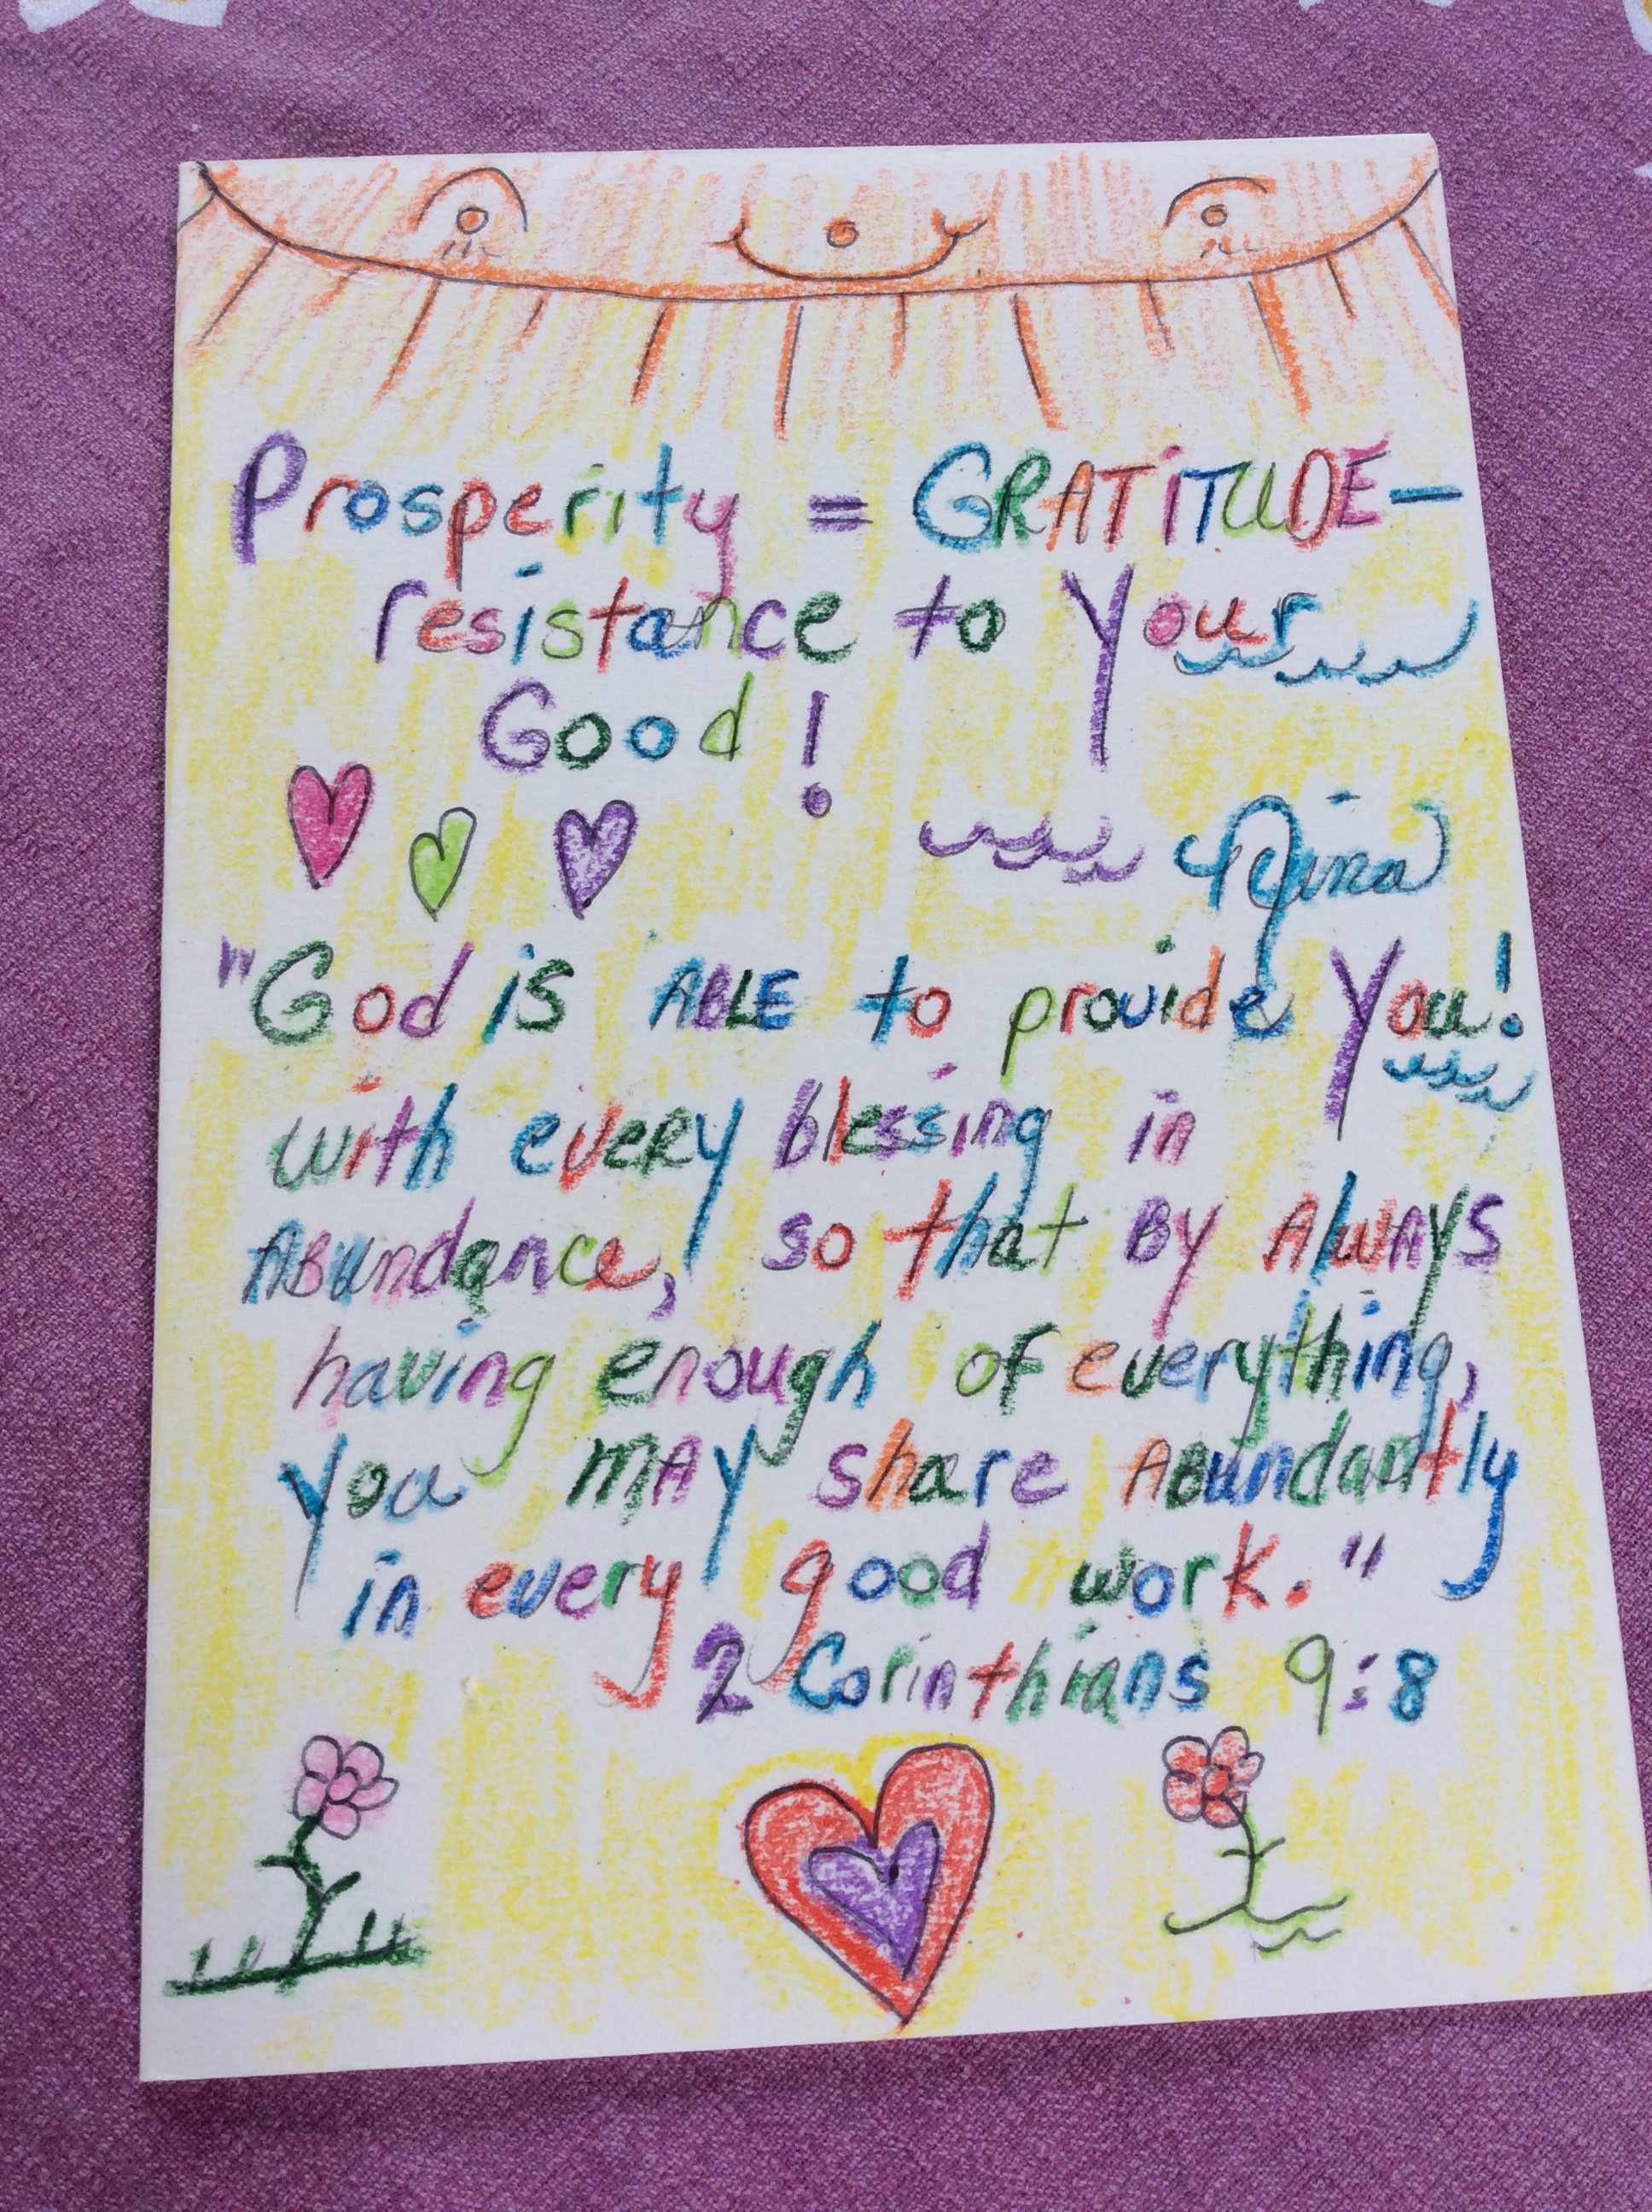 Prosperity = GRATiTUDE-
resistance to Your
Good!
Nina
"God is ABLE to provide You!
with eveRy blessing in
ABundance, so that By AlwAys
having enough of everything,
you mAy share ABundantly
in every good work."
2 Corinthians 9:8